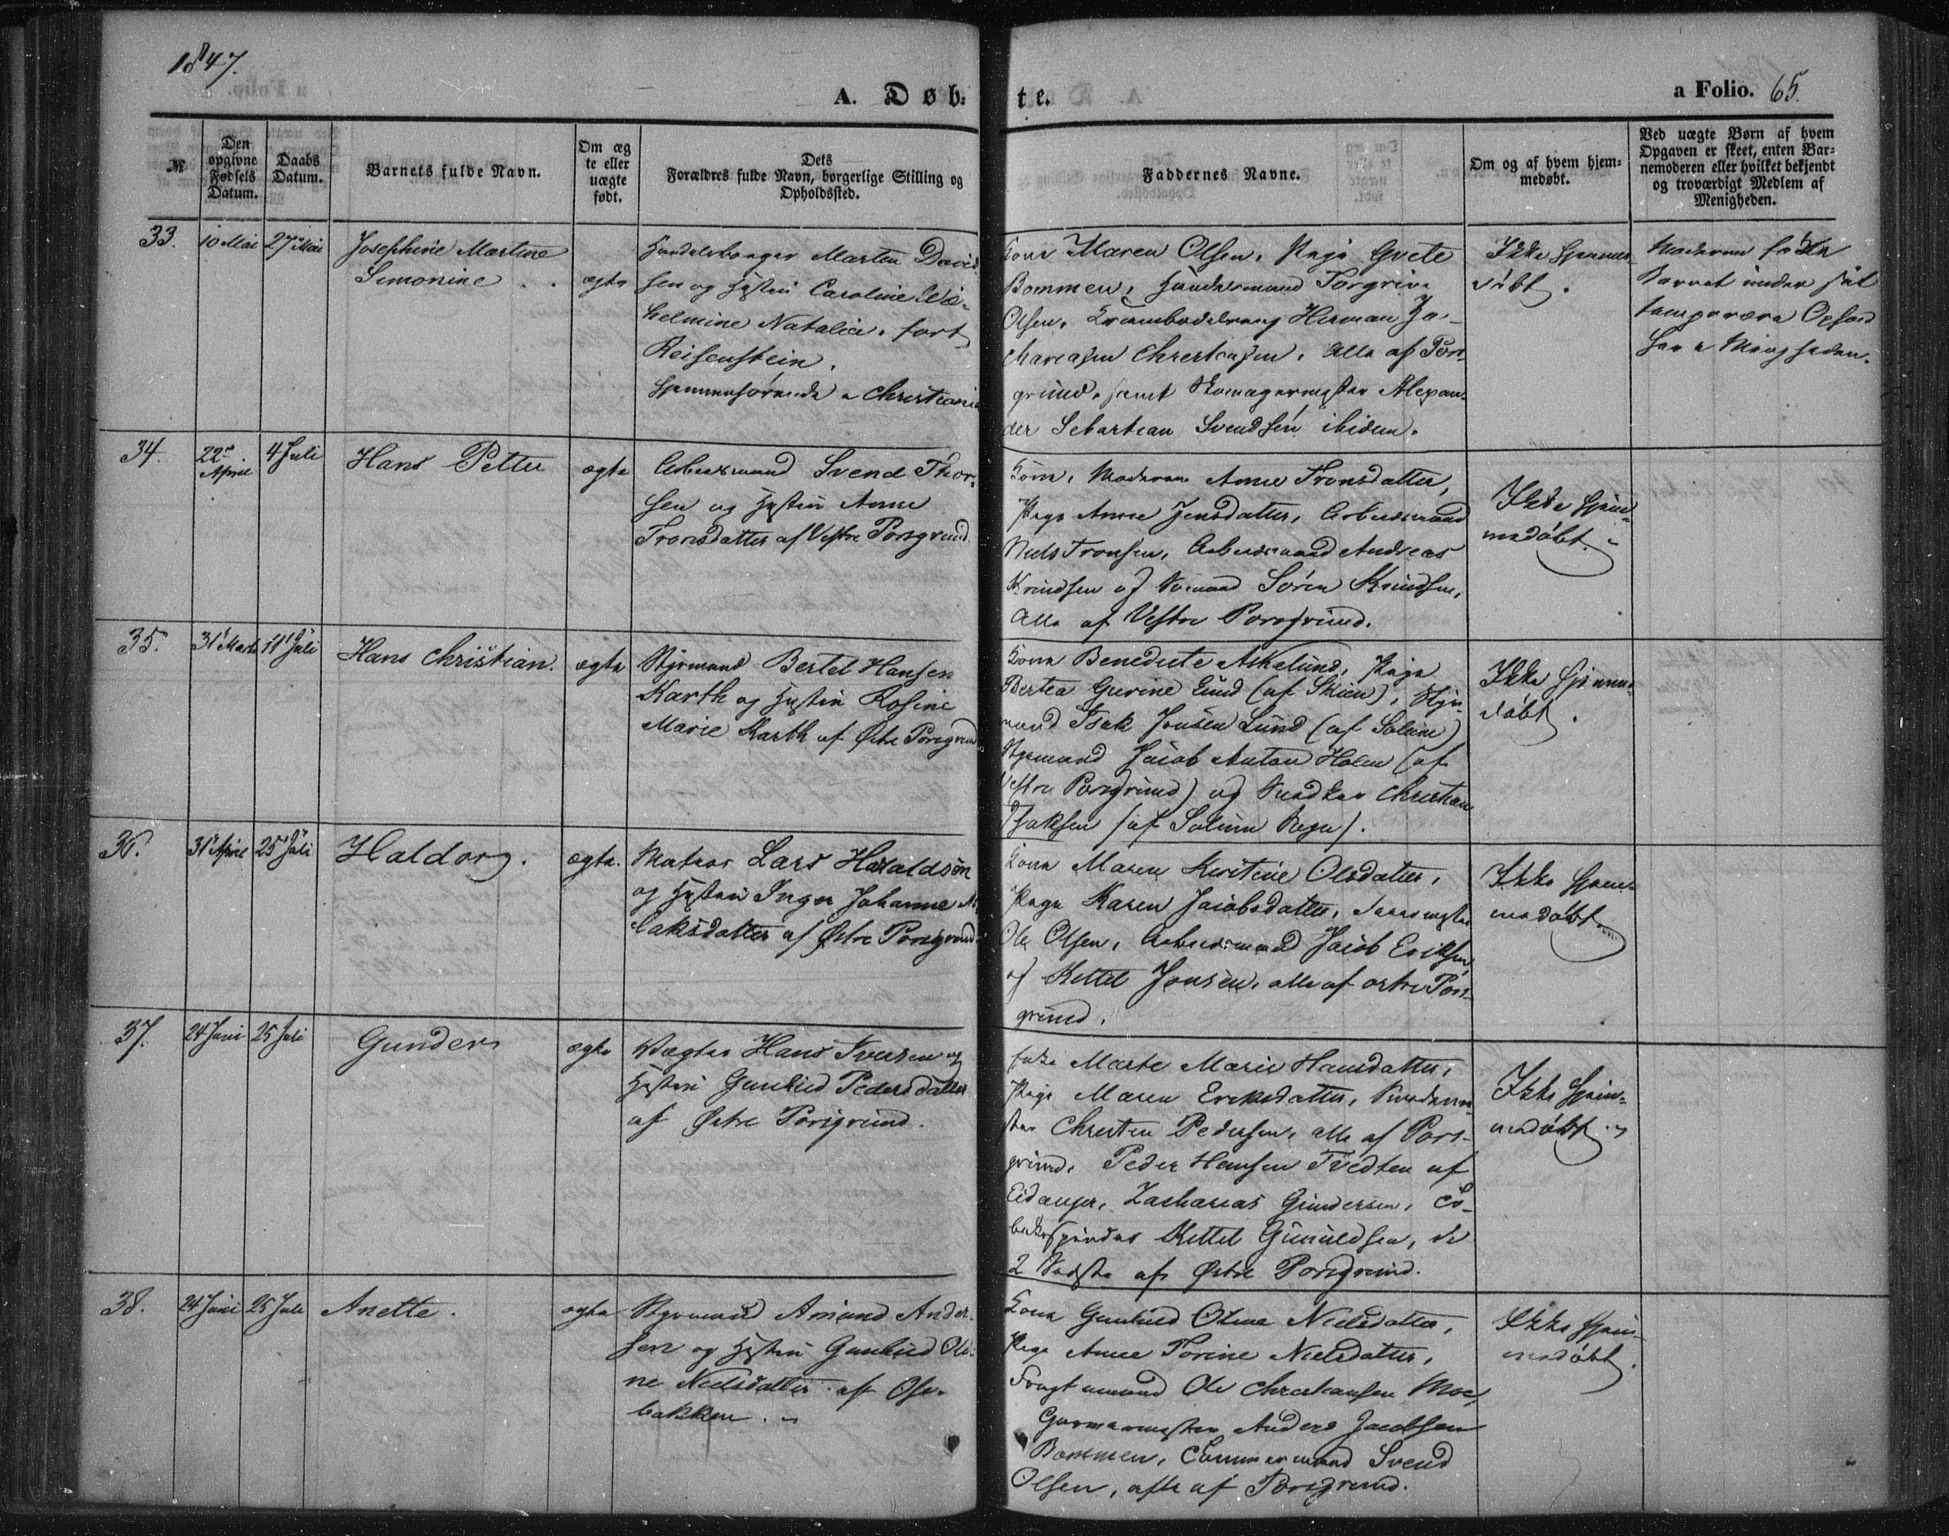 1847.
A. Døb-
te.
a Folio. 65.
№
Den
opgivne
Fødsels
Datum.
Daabs
Datum.
Barnets fulde Navn.
Om æg
te eller
uægte
født.
Dets
Forældres fulde Navn, borgerlige Stilling og
Opholdssted.
Faddernes Navne.
Om og af hvem hjem-
medøbt.
Ved uægte Børn af hvem
Opgaven er skeet, enten Bar-
nemoderen eller hvilket bekjendt
og troværdigt Medlem af
Menigheden.
33.
10 Mai
27 Mai
Josephine Martine
Simonine
ægte
Handelsborger Marten David
sen og Hustru Caroline Wil-
helmine Natalia, født
Reisenstein.
hjemmehørende i Christiania
Kone Maren Olsen, Pige Grete
Bommen, Handelsmand Torgrim
Olsen, Herman Za-
chariasen Christensen, Alle af Pors-
grund, samt Skomagermester Alexan-
der Sebastian Svendsen ibidem.
Ikke hjemme
døbt.
Moderen fødte
Barnet under sit
temporære Ophold
her i Menigheden.
34.
22de
April
4 Juli
Hans Petter
ægte
Arbeidsmand Svend Thor-
sen og Hustru Anne
Tronsdatter af Vestre Porsgrund.
Kone, Moderen Anne Tronsdatter,
Pige Anne Jensdatter, Arbeidsmand
Niels Tronsen, Arbeidsmand Andreas
Knudsen og Sømand Søren Knudsen,
Alle af Vestre Porsgrund.
Ikke hjem-
medøbt.
35.
31te Marts
11te Juli
Hans Christian.
ægte
Styrmand Bertel Hansen
Karth og Hustru Rosine
Marie Karth af Østre Porsgrund
Kone Benedicte Askelund, Pige
Bertea Gurine Lund (af Skien), Styr-
mand Isak Jonsen Lund (af Solum)
Styrmand Jacob Anton Holm (af
Vestre Porsgrund) og Snedker Christian
Isaksen (af Solum Sogn).
Ikke hjemme
døbt.
36.
31te April
25de Juli
Haldorg.
ægte.
Matros Lars Haraldsen
og Hustru Inger Johanne
laksdatter af Østre Porsgrund
Kone Maren Kirstine Olsdatter,
Pige Karen Jacobsdatter,
Ole Olsen, Arbeidsmand Jacob Eriksen
og Kittel Jonsen, alle af østre Pors-
grund.
Ikke hjem-
medøbt.
37.
24 Juni
25 Juli
Gunder
ægte
Vægter Hans Iversen og
Hustru Gunhild Pedersdatter
af Østre Porsgrund.
Enke Marte Marie Hansdatter,
Pige Maren Eriksdatter,
Christen Pedersen, alle af Pors-
grund, Peder Hansen Tvedten af
Eidanger, Zacharias Gundersen, To-
bakspinder Kittel Gunuldsen, de
2 Sidste af Østre Porsgrund.
Ikke hjem-
medøbt.
38.
24 Juni
25 Juli
Anette.
ægte
Styrmand Amund Ander-
sen og Hustru Gunhild Oli-
ne Nielsdatter af Ose-
bakken.
Kone Gunhild Oline Nielsdatter,
Pige Anne Torine Nielsdatter,
Fragtmand Ole Christiansen Moe,
Garvermester Anders Jacobsen
Bommen, Tømmermand Svend
Olsen, alle af Porsgrund.
Ikke hjem-
medøbt.